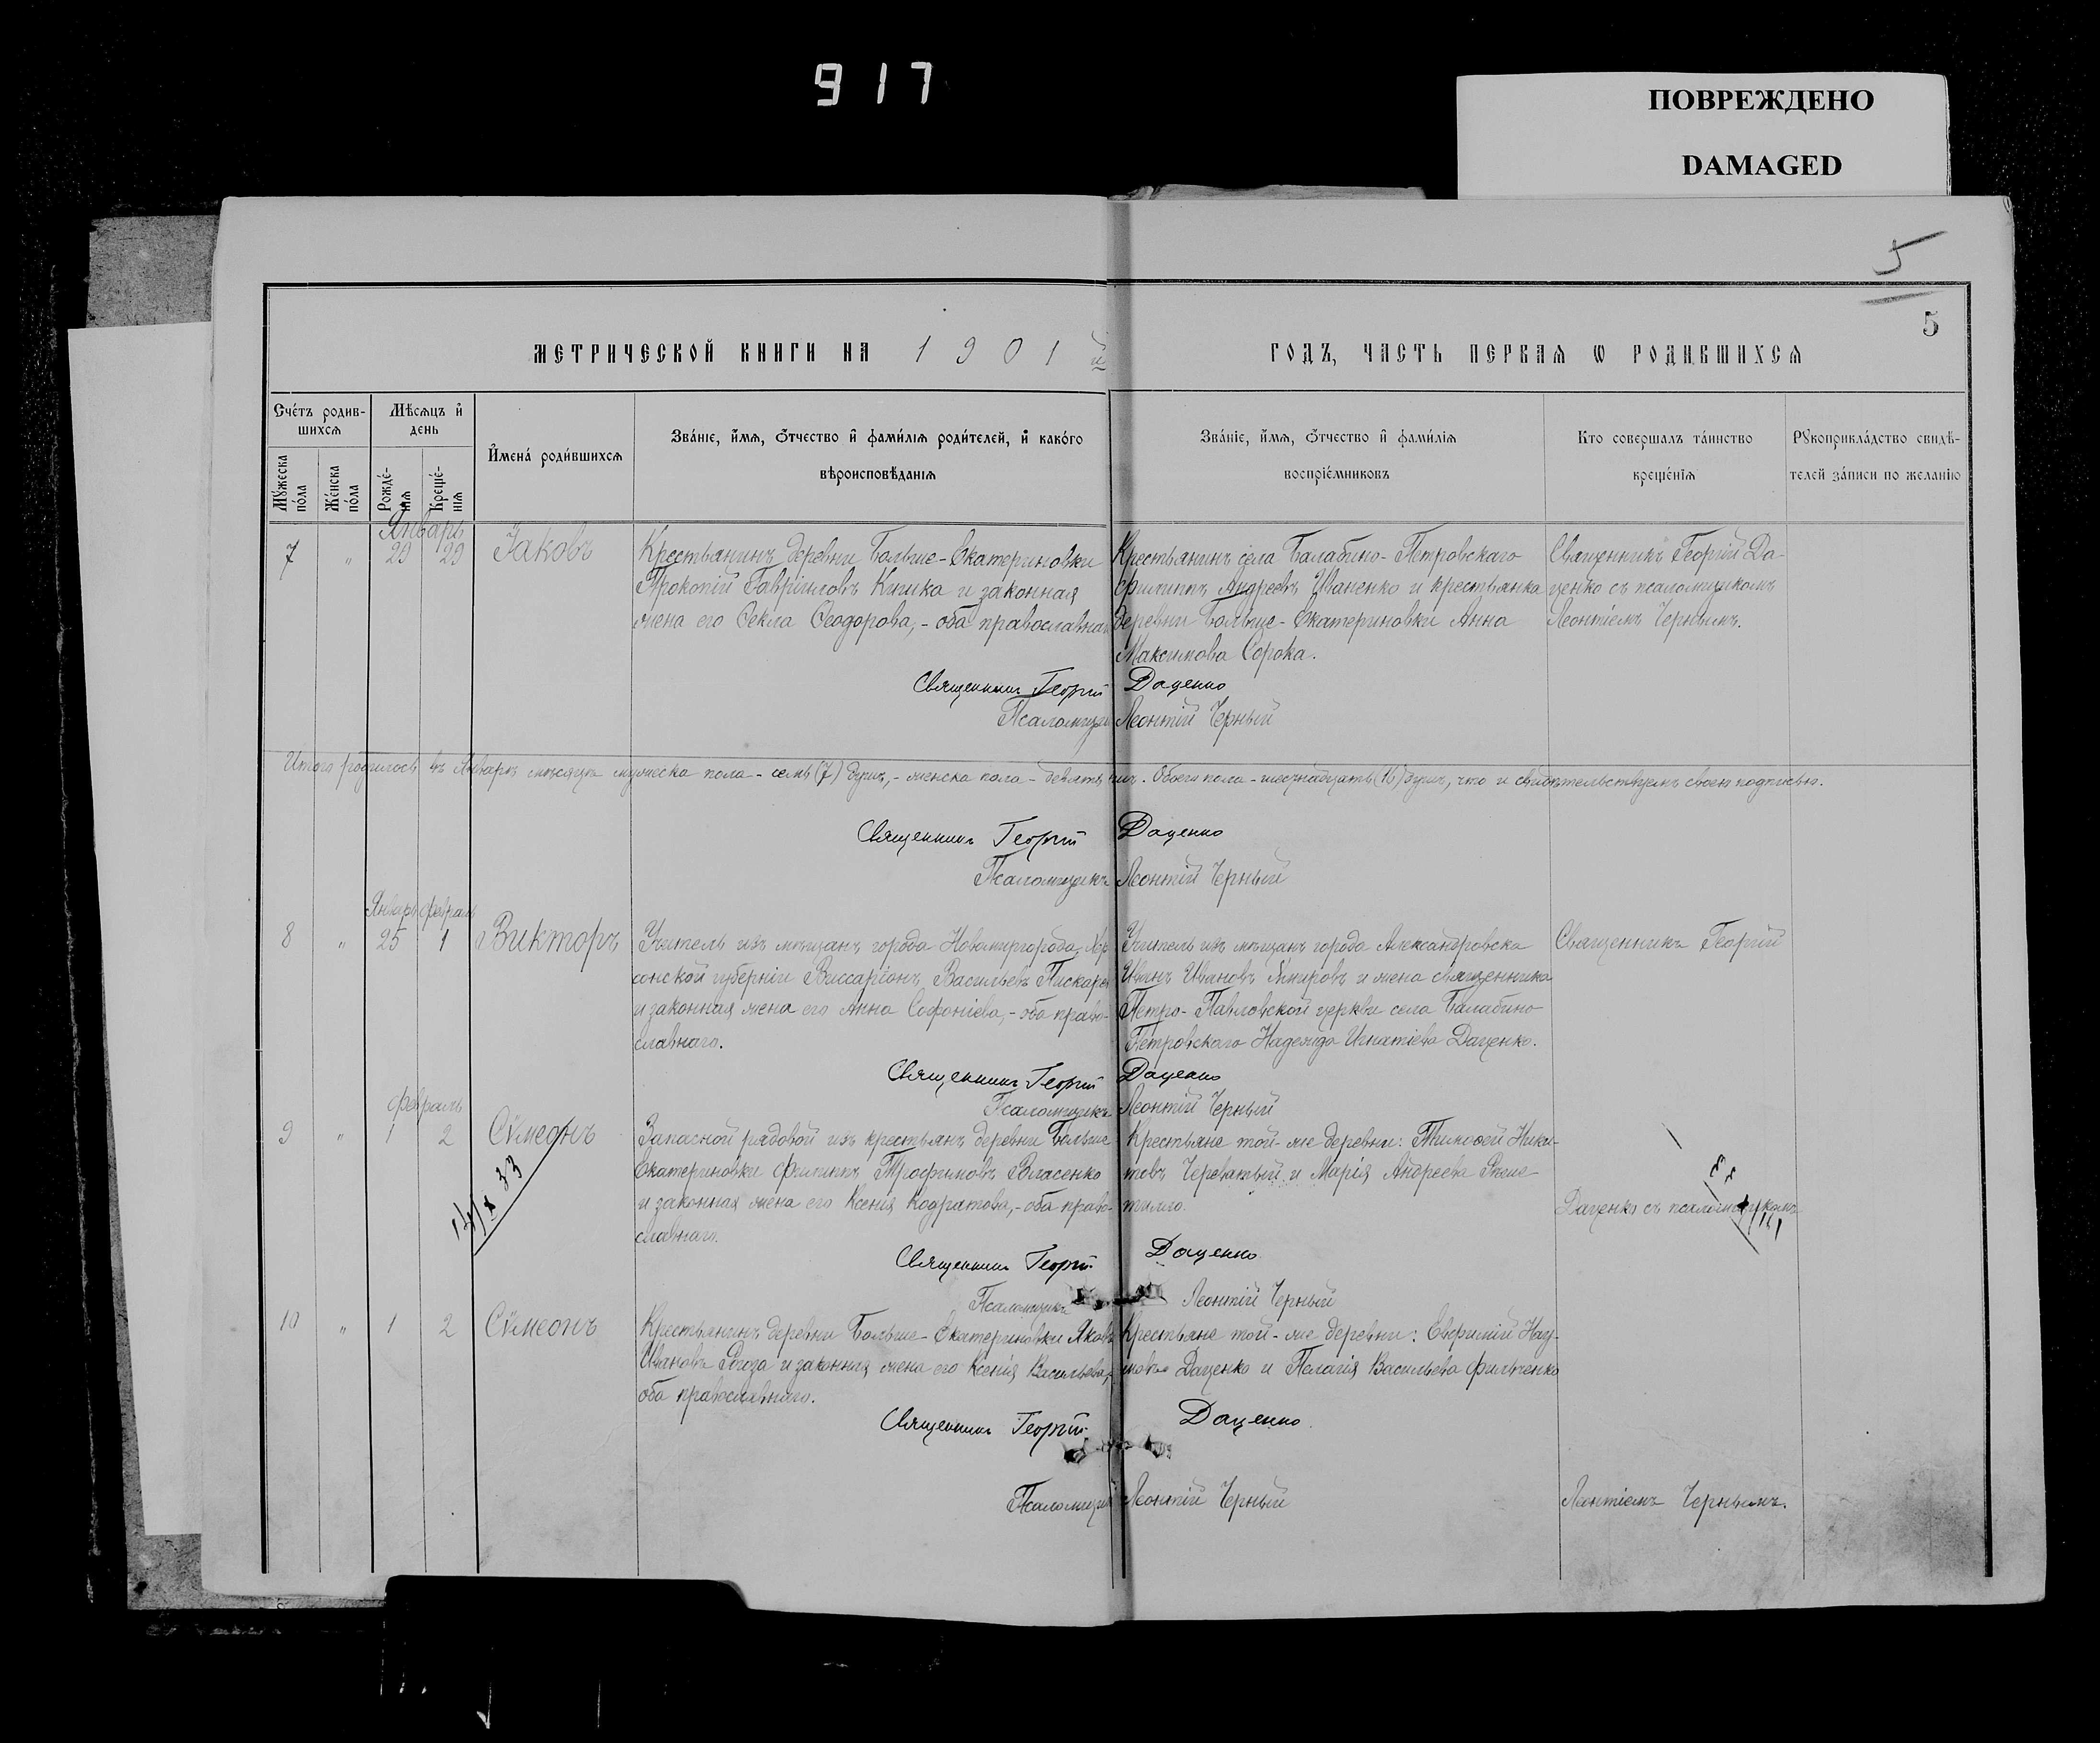 917
ПОВРЕЖДЕНО
DAMAGED
5
5
МЕТРИЧЕСКОЙ КНИГИ НА 1901й ГОДЪ, ЧАСТЬ ПЕРВАЯ Ѡ РОДИВШИХСЯ
Счетъ родив-
шихся
Мѣсяцъ и
день
Мужеска
пола
Женска
пола
Рожде-
нія
Креще-
нія
Имена родившихся
Званіе, имя, отчество и фамилія родителей, и какого
вѣроисповѣданія
Званіе, имя, отчество и фамилія
воспріемниковъ
Кто совершалъ таинство
крещенія
Рукоприкладство свидѣ-
телей записи по желанію
Январь
7 " 29 29 Іаковъ
Крестьянинъ деревни Больше-Екатериновки
Прокопій Гавріиловъ и законная
жена его Ѳекла Ѳеодорова, - оба православнаго
Крестьянинъ села Балабино-Петровскаго
Филиппъ Андреевъ Иваненко и крестьянка
деревни Больше-Екатериновки Анна
Максимова Сорока.
Священникъ Георгій Да-
ценко съ псаломщикомъ
Леонтіемъ Чернымъ.
Священникъ Георгій Даценко
Псаломщикъ Леонтій Черный
Итого родилось въ Январѣ мѣсяцѣ мужеска пола - семь (7) душъ, - женска пола - девять душъ. Обоего пола - шестнадцать (16) душъ, что и свидѣтельствуемъ своею подписью.
Священникъ Георгій Даценко
Псаломщикъ Леонтій Черный
Январь Февраль
8 " 25 1 Викторъ
Учитель изъ мѣщанъ города Новомиргорода, Хер-
сонской губерніи Виссаріонъ Васильевъ Пискаревъ
и законная жена его Анна Софоніева, - оба право-
славнаго.
Учитель изъ мѣщанъ города Александровска
Иванъ Ивановъ и жена священника
Петро-Павловской церкви села Балабино-
Петровскаго Надежда Игнатіева Даценко.
Священникъ Георгій
Священникъ Георгій Даценко
Псаломщикъ Леонтій Черный
Февраль
9 " 1 2 Сѵмеонъ
Запасной рядовой изъ крестьянъ деревни Больше-
Екатериновки Филиппъ Трофимовъ Власенко
и законная жена его Ксенія Кодратова, - оба право-
славнаго.
Крестьяне той-же деревни: Тимоѳей Ники-
товъ Череватый и Марія Андреева Реше-
тило.
Даценко съ псаломщикомъ
Священникъ Георгій Даценко
Псаломщикъ Леонтій Черный
10 " 1 2 Сѵмеонъ
Крестьянинъ деревни Больше-Екатериновки Яковъ
Ивановъ Рогоза и законная жена его Ксенія Васильева, -
оба православнаго.
Крестьяне той-же деревни: Евфимій Нау-
мовъ Даценко и Пелагія Васильева Фильченко
Священникъ Георгій Даценко
Псаломщикъ Леонтій Черный
Леонтіемъ Чернымъ.